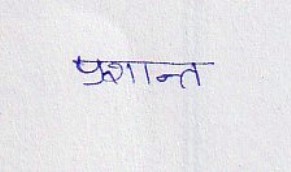 प्रशान्त